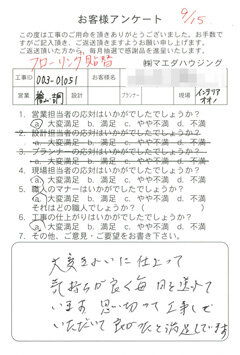 お客様アンケート 9/15
この度は工事のご用命を頂きありがとうございました。お手数で
すがご記入頂き、ご返送頂きますようお願い申し上げます。
ご返送頂いた方から、毎月抽選で感謝品を進呈いたします。
フローリング貼替 ㈱マエダハウジング
工事ID 003-01051 お客様名
営業 設計 プランナー 現場
1. 営業担当者の対応はいかがでしたでしょうか?
a 大変満足 b. 満足 c. やや不満 d. 不満
2. 設計担当者の対応はいかがでしたでしょうか?
a. 大変満足 b. 満足 c. やや不満 d. 不満
3. プランナーの対応はいかがでしたでしょうか?
a. 大変満足 b. 満足 c. やや不満 d. 不満
4. 現場担当者の対応はいかがでしたでしょうか?
a 大変満足 b. 満足 c. やや不満 d. 不満
5. 職人のマナーはいかがでしたでしょうか?
a 大変満足 b. 満足 c. やや不満 d. 不満
それはどの職人でしょうか?( )
6. 工事の仕上がりはいかがでしたでしょうか?
a 大変満足 b. 満足 c. やや不満 d. 不満
7. その他、ご意見・ご要望をお書き下さい。
大変きれいに仕上って
気持ちが良く毎日を送れて
います 思い切って工事して
いただいて 良かったと満足しています